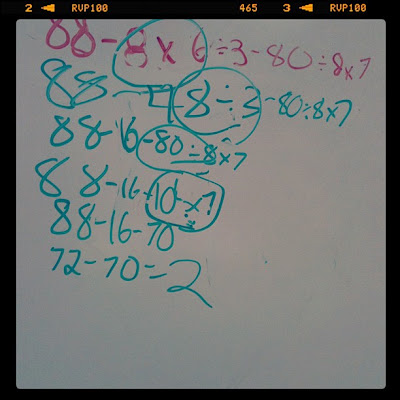 2 ◄ RVP100 465 3 ◄ RVP100
88-8x6÷3-80÷8x7
88-48÷3-80÷8x7
88-16-80÷8x7
88-16-10x7
88-16-70
72-70=2